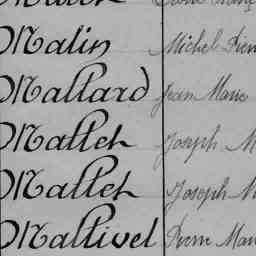 Malin Michel Pierr
Mallard Jean Marie
Mallet Joseph M
Mallet Joseph M
Mallivel Pierre Mari